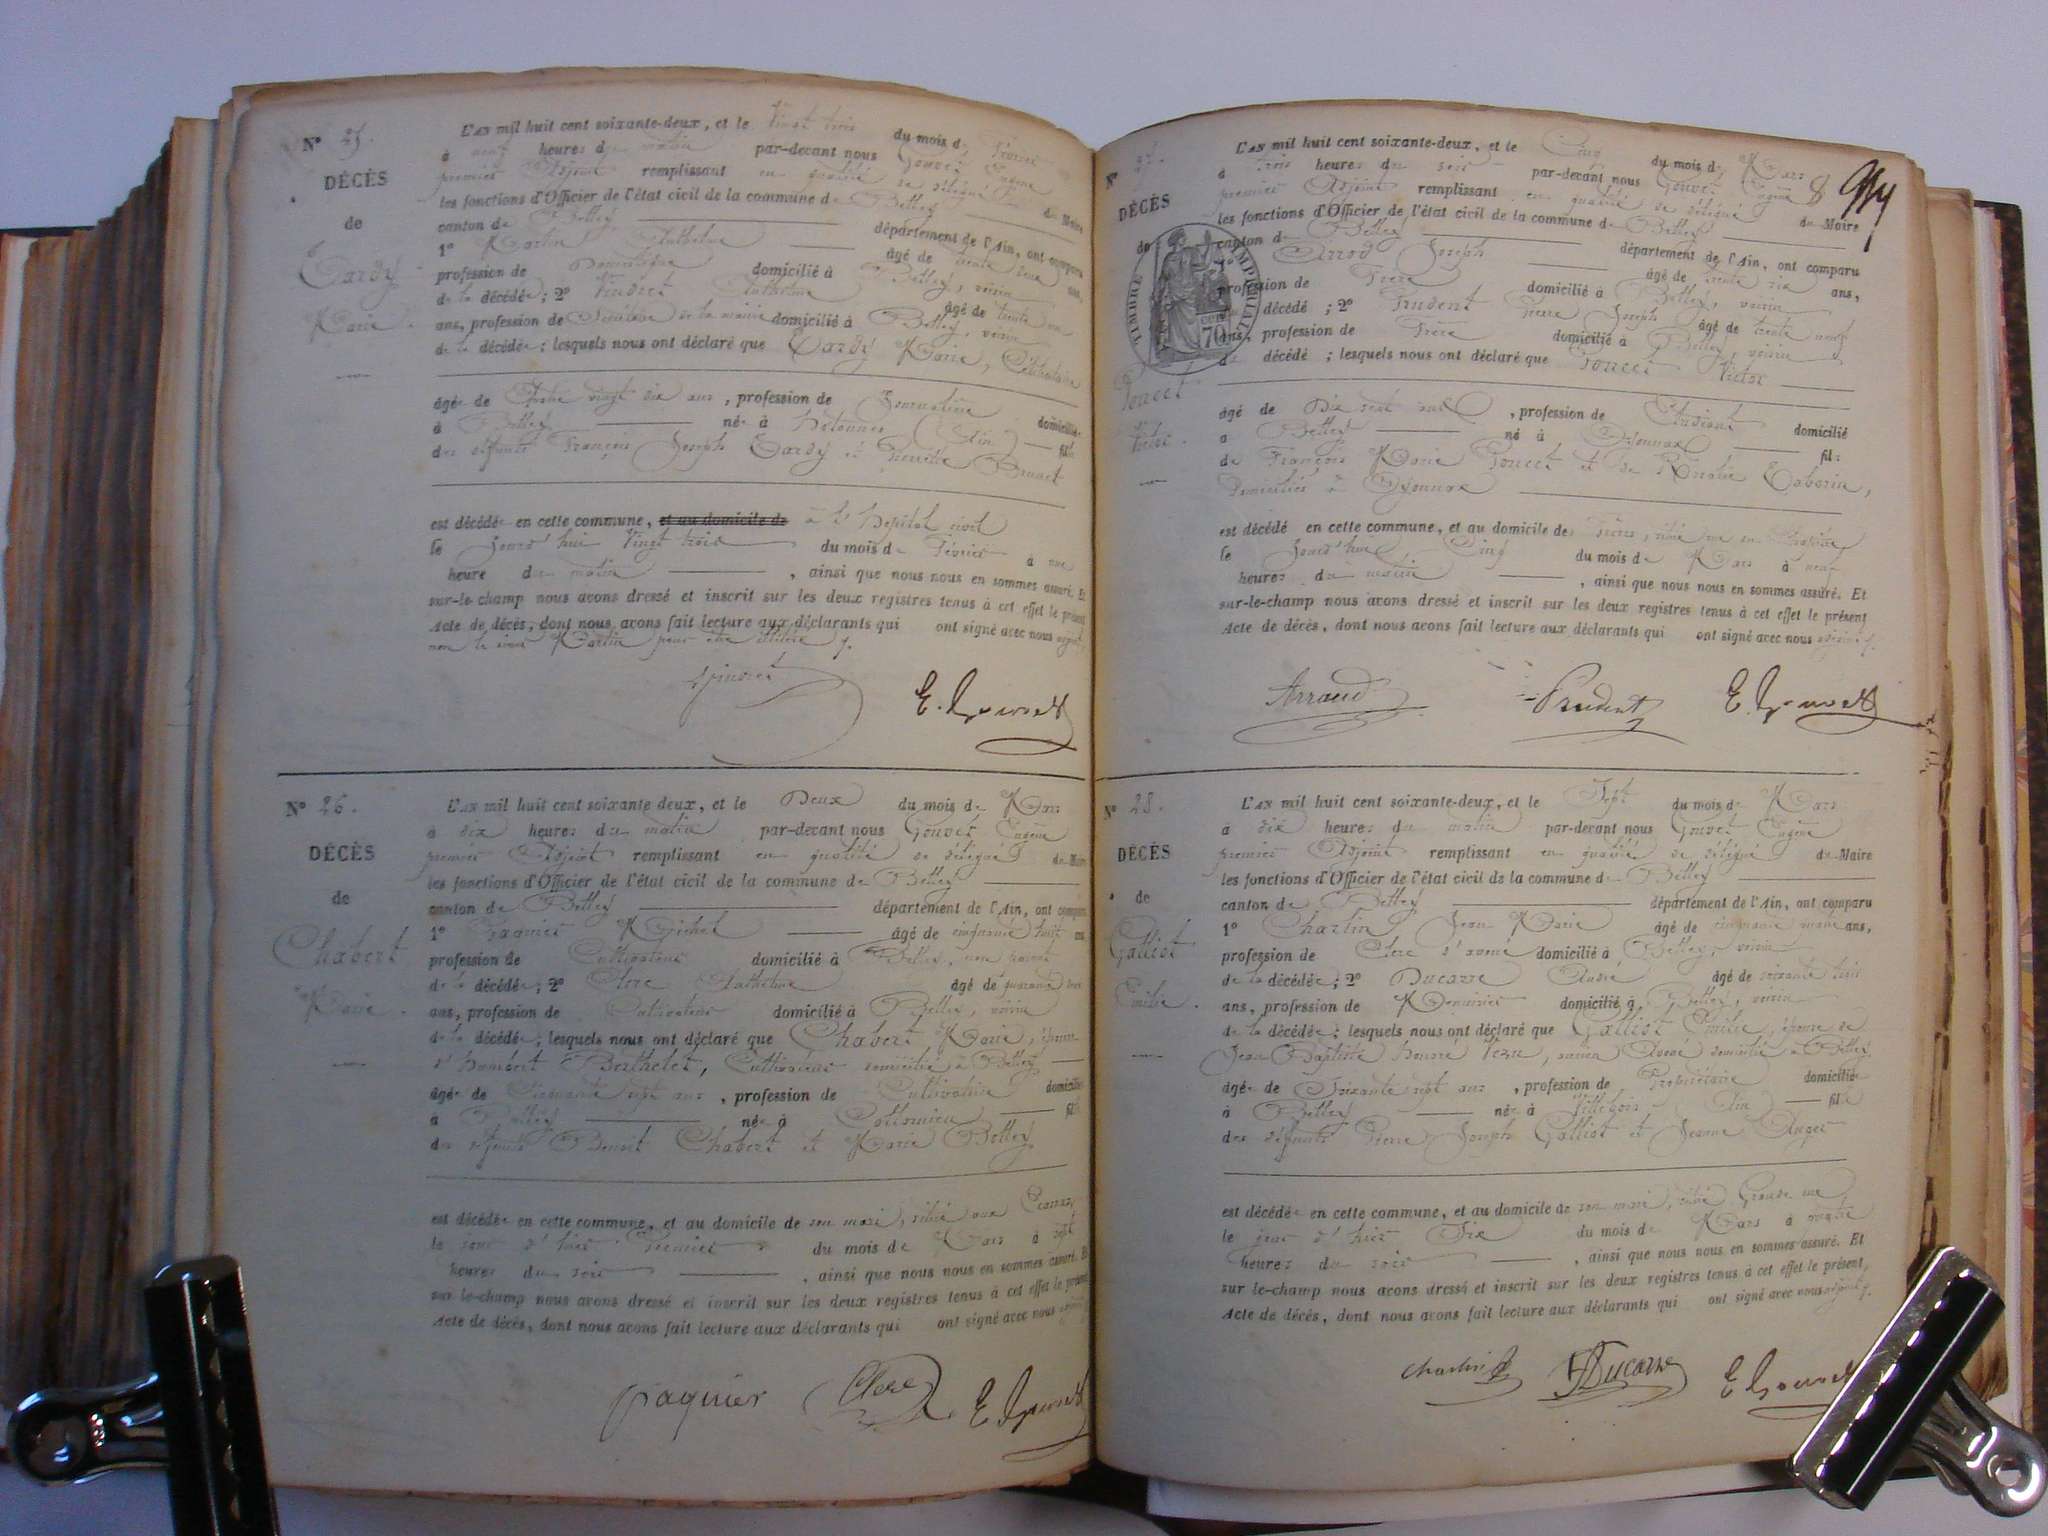 N° 25.
DÉCÈS
de
Tardy
Marie.
L'AN mil huit cent soixante-deux, et le Vingt trois du mois de Février
à neuf heures du matin par-devant nous Gouvet Eugène
premier Adjoint remplissant en qualité de délégué du Maire
les fonctions d'Officier de l'état civil de la commune de Belley
canton de Belley département de l'Ain, ont comparu
1° Martin Anthelme âgé de trente deux ans,
profession de Domestique domicilié à Belley, voisin
de la décédée; 2° Vindret Anthelme âgé de trente un
ans, profession de Secrétaire de la mairie domicilié à Belley, voisin
de la décédée; lesquels nous ont déclaré que Tardy Marie, Célibataire
âgée de Quatre vingt dix ans, profession de Journalière domiciliée
à Belley née à Hotonnes (Ain) fille
des défunts François Joseph Tardy et Pierrette Brunet
est décédée en cette commune, et au domicile de à l'Hôpital civil
le jourd'hui Vingt trois du mois de Février à une
heure du matin, ainsi que nous nous en sommes assuré. Et
sur-le-champ nous avons dressé et inscrit sur les deux registres tenus à cet effet le présent
Acte de décès, dont nous avons fait lecture aux déclarants qui ont signé avec nous adjoint,
non le sieur Martin pour être illitéré
Vindret E. Gouvet
N° 26.
DÉCÈS
de
Chabert
Marie.
L'AN mil huit cent soixante deux, et le Deux du mois de Mars
à dix heures du matin par-devant nous Gouvet Eugène
premier Adjoint remplissant en qualité de délégué du Maire
les fonctions d'Officier de l'état civil de la commune de Belley
canton de Belley département de l'Ain, ont comparu
1° Paquier Michel âgé de cinquante huit ans
profession de Cultivateur domicilié à Belley, non parent
de la décédée; 2° Clerc Anthelme âgé de quarante
ans, profession de Cultivateur domicilié à Belley, voisin
de la décédée; lesquels nous ont déclaré que Chabert Marie, épouse
d'Humbert Berthelet, Cultivateur domicilié à Belley
âgée de Cinquante sept ans, profession de Cultivatrice domiciliée
à Belley née à Colomieu fille
des défunts Benoit Chabert et Marie Bolley
est décédée en cette commune, et au domicile de son mari, situé aux
le jour d'hier Premier du mois de Mars à sept
heures du soir, ainsi que nous nous en sommes assuré. Et
sur le-champ nous avons dressé et inscrit sur les deux registres tenus à cet effet le présent
Acte de décès, dont nous avons fait lecture aux déclarants qui ont signé avec nous adjoint
Paquier Clerc E. Gouvet
N° 27.
DÉCÈS
de
TIMBRE IMPÉRIAL
70
Poncet
Victor.
L'AN mil huit cent soixante-deux, et le Cinq du mois de Mars
à trois heures du soir par-devant nous Gouvet Eugène
premier Adjoint remplissant en qualité de délégué du Maire
les fonctions d'Officier de l'état civil de la commune de Belley
canton de Belley département de l'Ain, ont comparu
Joseph âgé de trente six ans,
profession de Frère domicilié à Belley, voisin
décédé; 2° Prudent Pierre Joseph âgé de trente neuf
ans, profession de Frère domicilié à Belley, voisin
du décédé; lesquels nous ont déclaré que Poncet Victor
âgé de Dix sept ans, profession de Etudiant domicilié
à Belley né à Oyonnax fils
de François Marie Poncet et de Rosalie Tabarin,
domiciliés à Oyonnax
est décédé en cette commune, et au domicile des Frères,
le jourd'hui Cinq du mois de Mars à neuf
heures du matin, ainsi que nous nous en sommes assuré. Et
sur-le-champ nous avons dressé et inscrit sur les deux registres tenus à cet effet le présent
Acte de décès, dont nous avons fait lecture aux déclarants qui ont signé avec nous adjoint.
Arraud Prudent E. Gouvet
N° 28.
DÉCÈS
de
Galliot
Emilie.
L'AN mil huit cent soixante-deux, et le Sept du mois de Mars
à dix heures du matin par-devant nous Gouvet Eugène
premier Adjoint remplissant en qualité de délégué du Maire
les fonctions d'Officier de l'état civil de la commune de Belley
canton de Belley département de l'Ain, ont comparu
1° Charlin Jean Marie âgé de cinquante ans,
profession de Clerc d'avoué domicilié à Belley, voisin
de la décédée; 2° Ducarre André âgé de soixante trois
ans, profession de Menuisier domicilié à Belley, voisin
de la décédée; lesquels nous ont déclaré que Galliot Emilie, épouse de
Jean Baptiste Honoré Vezu, ancien Avoué domicilié à Belley
âgée de Soixante sept ans, profession de Propriétaire domiciliée
à Belley née à Villebois Ain fille
des défunts Pierre Joseph Galliot et Jeanne Auger
est décédée en cette commune, et au domicile de son mari, situé Grande rue
le jour d'hier Six du mois de Mars à quatre
heures du soir, ainsi que nous nous en sommes assuré. Et
sur le-champ nous avons dressé et inscrit sur les deux registres tenus à cet effet le présent,
Acte de décès, dont nous avons fait lecture aux déclarants qui ont signé avec nous adjoint.
Charlin Ducarre E. Gouvet